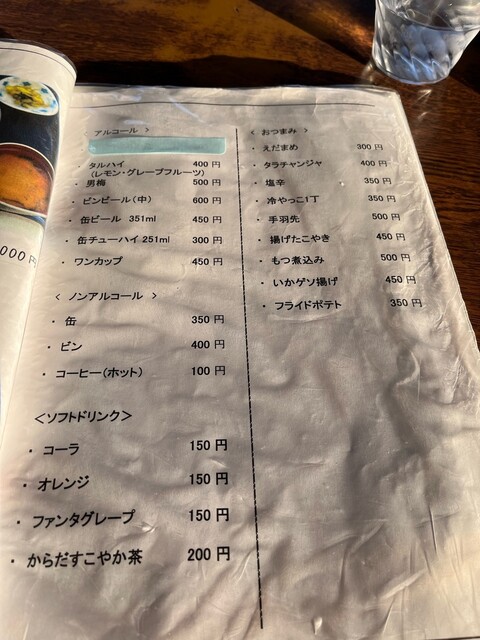 000円
アルコール >
・ タルハイ 400 円
(レモン・グレープフルーツ)
・ 男梅 500 円
・ ビンビール(中) 600 円
・ 缶ビール 351ml 450 円
・ 缶チューハイ 251ml 300 円
・ ワンカップ 450 円
< ノンアルコール >
・ 缶 350 円
・ ビン 400 円
・ コーヒー(ホット) 100 円
<ソフトドリンク>
・ コーラ 150 円
・ オレンジ 150 円
・ ファンタグレープ 150 円
・ からだすこやか茶 200 円
< おつまみ >
・ えだまめ 300 円
・ タラチャンジャ 400 円
・ 塩辛 350 円
・ 冷やっこ1丁 350 円
・ 手羽先 500 円
・ 揚げたこやき 450 円
・ もつ煮込み 500 円
・ いかゲソ揚げ 450 円
・ フライドポテト 350 円